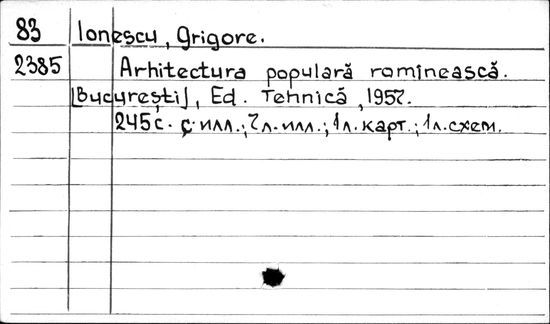 83 Ionescu, Grigore.
2385 Arhitectura populară romînească.
[București], Ed. Tehnică, 1957.
245с. с илл.; 7л. илл.; 1л. карт.; 1л. схем.